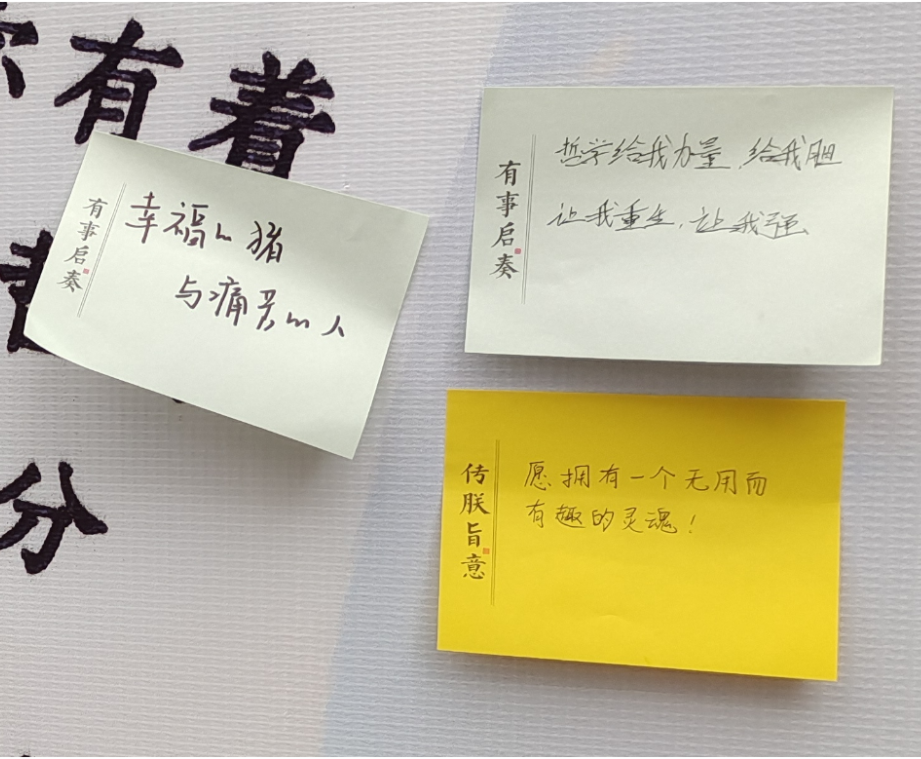 有着
分
有事启奏
幸福的猪
与痛苦的人
有事启奏
哲学给我力量,给我胆
让我重生,让我强
传朕旨意
愿拥有一个无用而
有趣的灵魂!